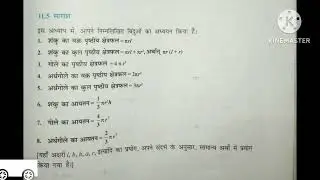 11.5 सारांश
इस अध्याय में, आपने निम्नलिखित बिंदुओं का अध्ययन किया है:
1. शंकु का वक्र पृष्ठीय क्षेत्रफल = πrl
2. शंकु का कुल पृष्ठीय क्षेत्रफल = πrl + πr², अर्थात् πr (l + r)
3. गोले का पृष्ठीय क्षेत्रफल = 4 π r²
4. अर्धगोले का वक्र पृष्ठीय क्षेत्रफल = 2πr²
5. अर्धगोले का कुल पृष्ठीय क्षेत्रफल = 3πr²
6. शंकु का आयतन = 1/3 πr²h
7. गोले का आयतन = 4/3 πr³
8. अर्धगोले का आयतन = 2/3 πr³
[यहाँ अक्षरों l, b, h, a, r, इत्यादि का प्रयोग, अपने संदर्भ के अनुसार, सामान्य अर्थों में प्रयोग
किया गया है।]
MADE WITH
KINEMASTER